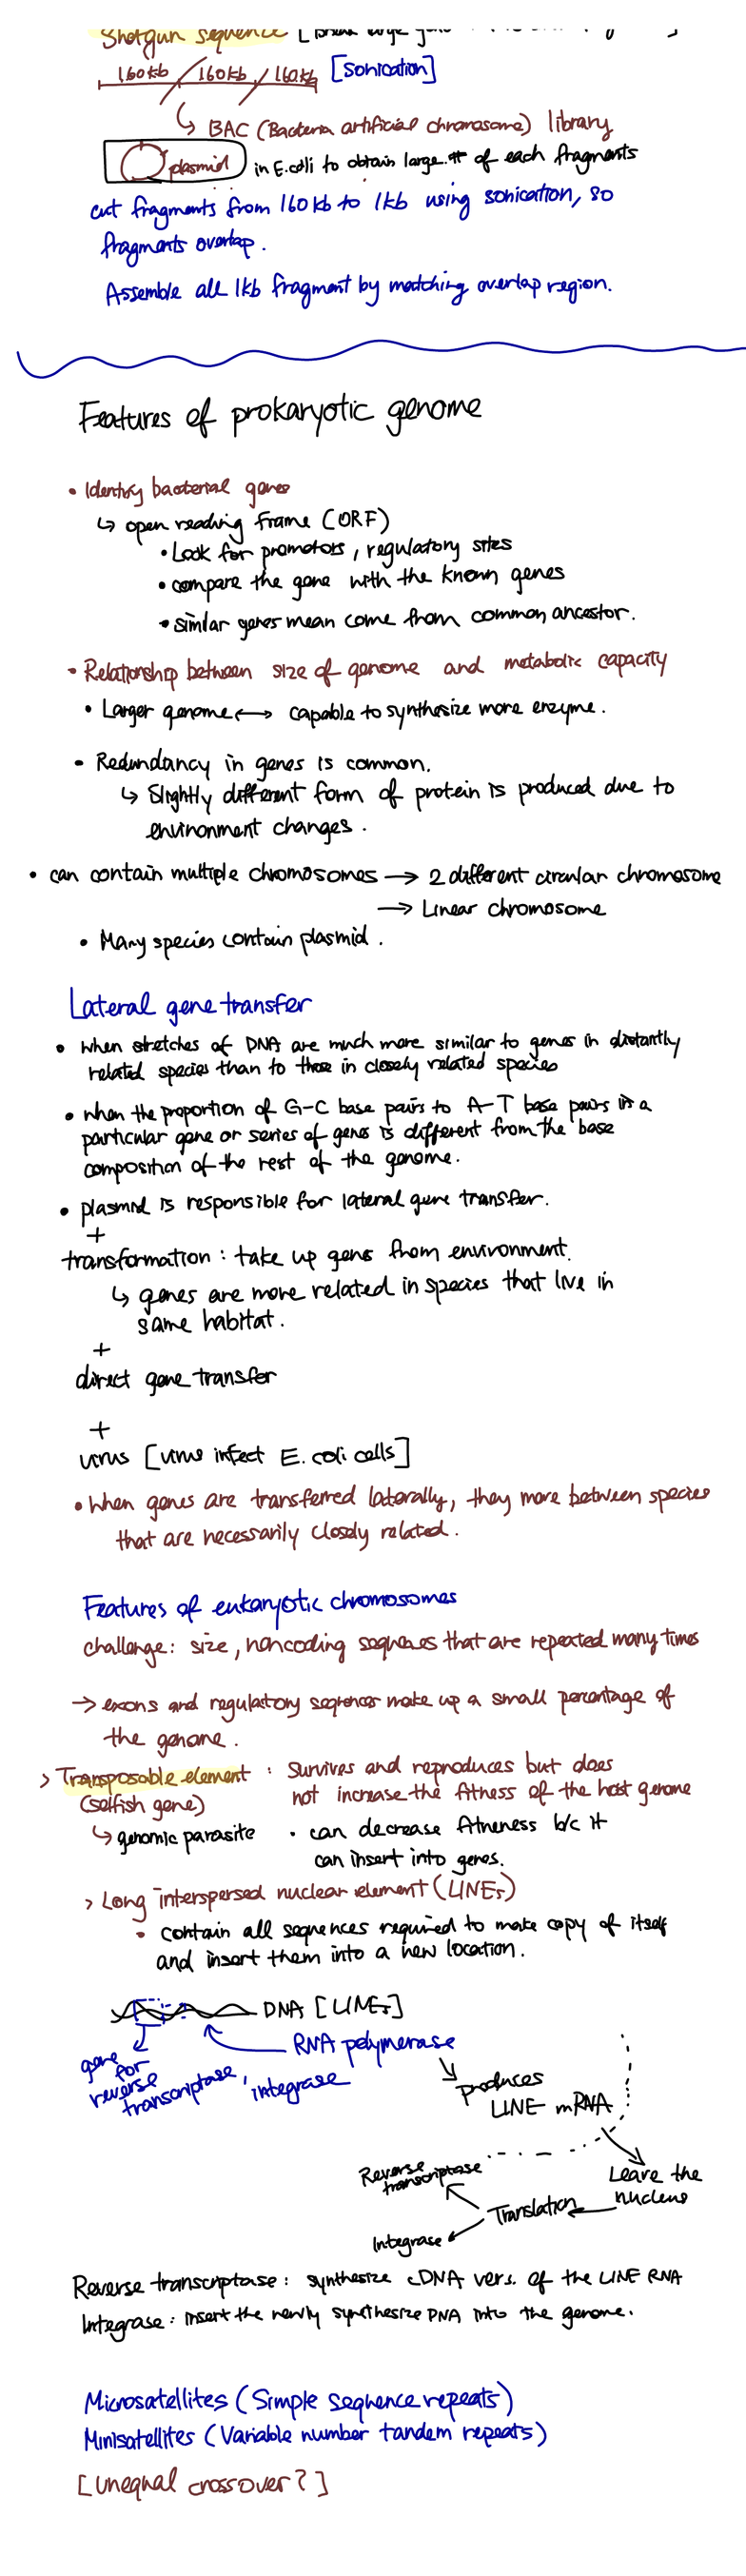 Shotgun sequence [
160kb / 160kb / 160kb [Sonication]
↳ BAC (Bacteria artificial chromosome) library
plasmid in E.coli to obtain large # of each fragments
cut fragments from 160kb to 1kb using sonication, so
fragments overlap.
Assemble all 1kb fragment by matching overlap region.
Features of prokaryotic genome
• Identify bacterial genes
↳ open reading frame (ORF)
• Look for promotors, regulatory sites
• compare the gene with the known genes
• similar genes mean come from common ancestor.
• Relationship between size of genome and metabolic capacity
• Larger genome ↔ capable to synthesize more enzyme.
• Redundancy in genes is common.
↳ Slightly different form of protein is produced due to
environment changes.
• can contain multiple chromosomes → 2 different circular chromosome
→ Linear chromosome
• Many species contain plasmid.
Lateral gene transfer
• when stretches of DNA are much more similar to genes in distantly
related species than to those in closely related species
• when the proportion of G-C base pairs to A-T base pairs in a
particular gene or series of genes is different from the base
composition of the rest of the genome.
• plasmid is responsible for lateral gene transfer.
+
transformation : take up genes from environment.
↳ genes are more related in species that live in
same habitat.
+
direct gene transfer
+
virus [virus infect E. coli cells]
• When genes are transferred laterally, they more between species
that are necessarily closely related.
Features of eukaryotic chromosomes
challenge: size, noncoding sequences that are repeated many times
→ exons and regulatory sequences make up a small percentage of
the genome.
> Transposable element : Survives and reproduces but does
(selfish gene) not increase the fitness of the host genome
↳ genomic parasite • can decrease fitness b/c it
can insert into genes.
> Long interspersed nuclear element (LINEs)
• contain all sequences required to make copy of itself
and insert them into a new location.
DNA [LINEs]
RNA polymerase
gene for reverse transcriptase, integrase
produces
LINE mRNA
Leave the
nucleus
Translation
Reverse
transcriptase
Integrase
Reverse transcriptase : synthesize cDNA vers. of the LINE RNA
Integrase : insert the newly synthesize DNA into the genome.
Microsatellites (Simple sequence repeats)
Minisatellites (Variable number tandem repeats)
[Unequal crossover?]